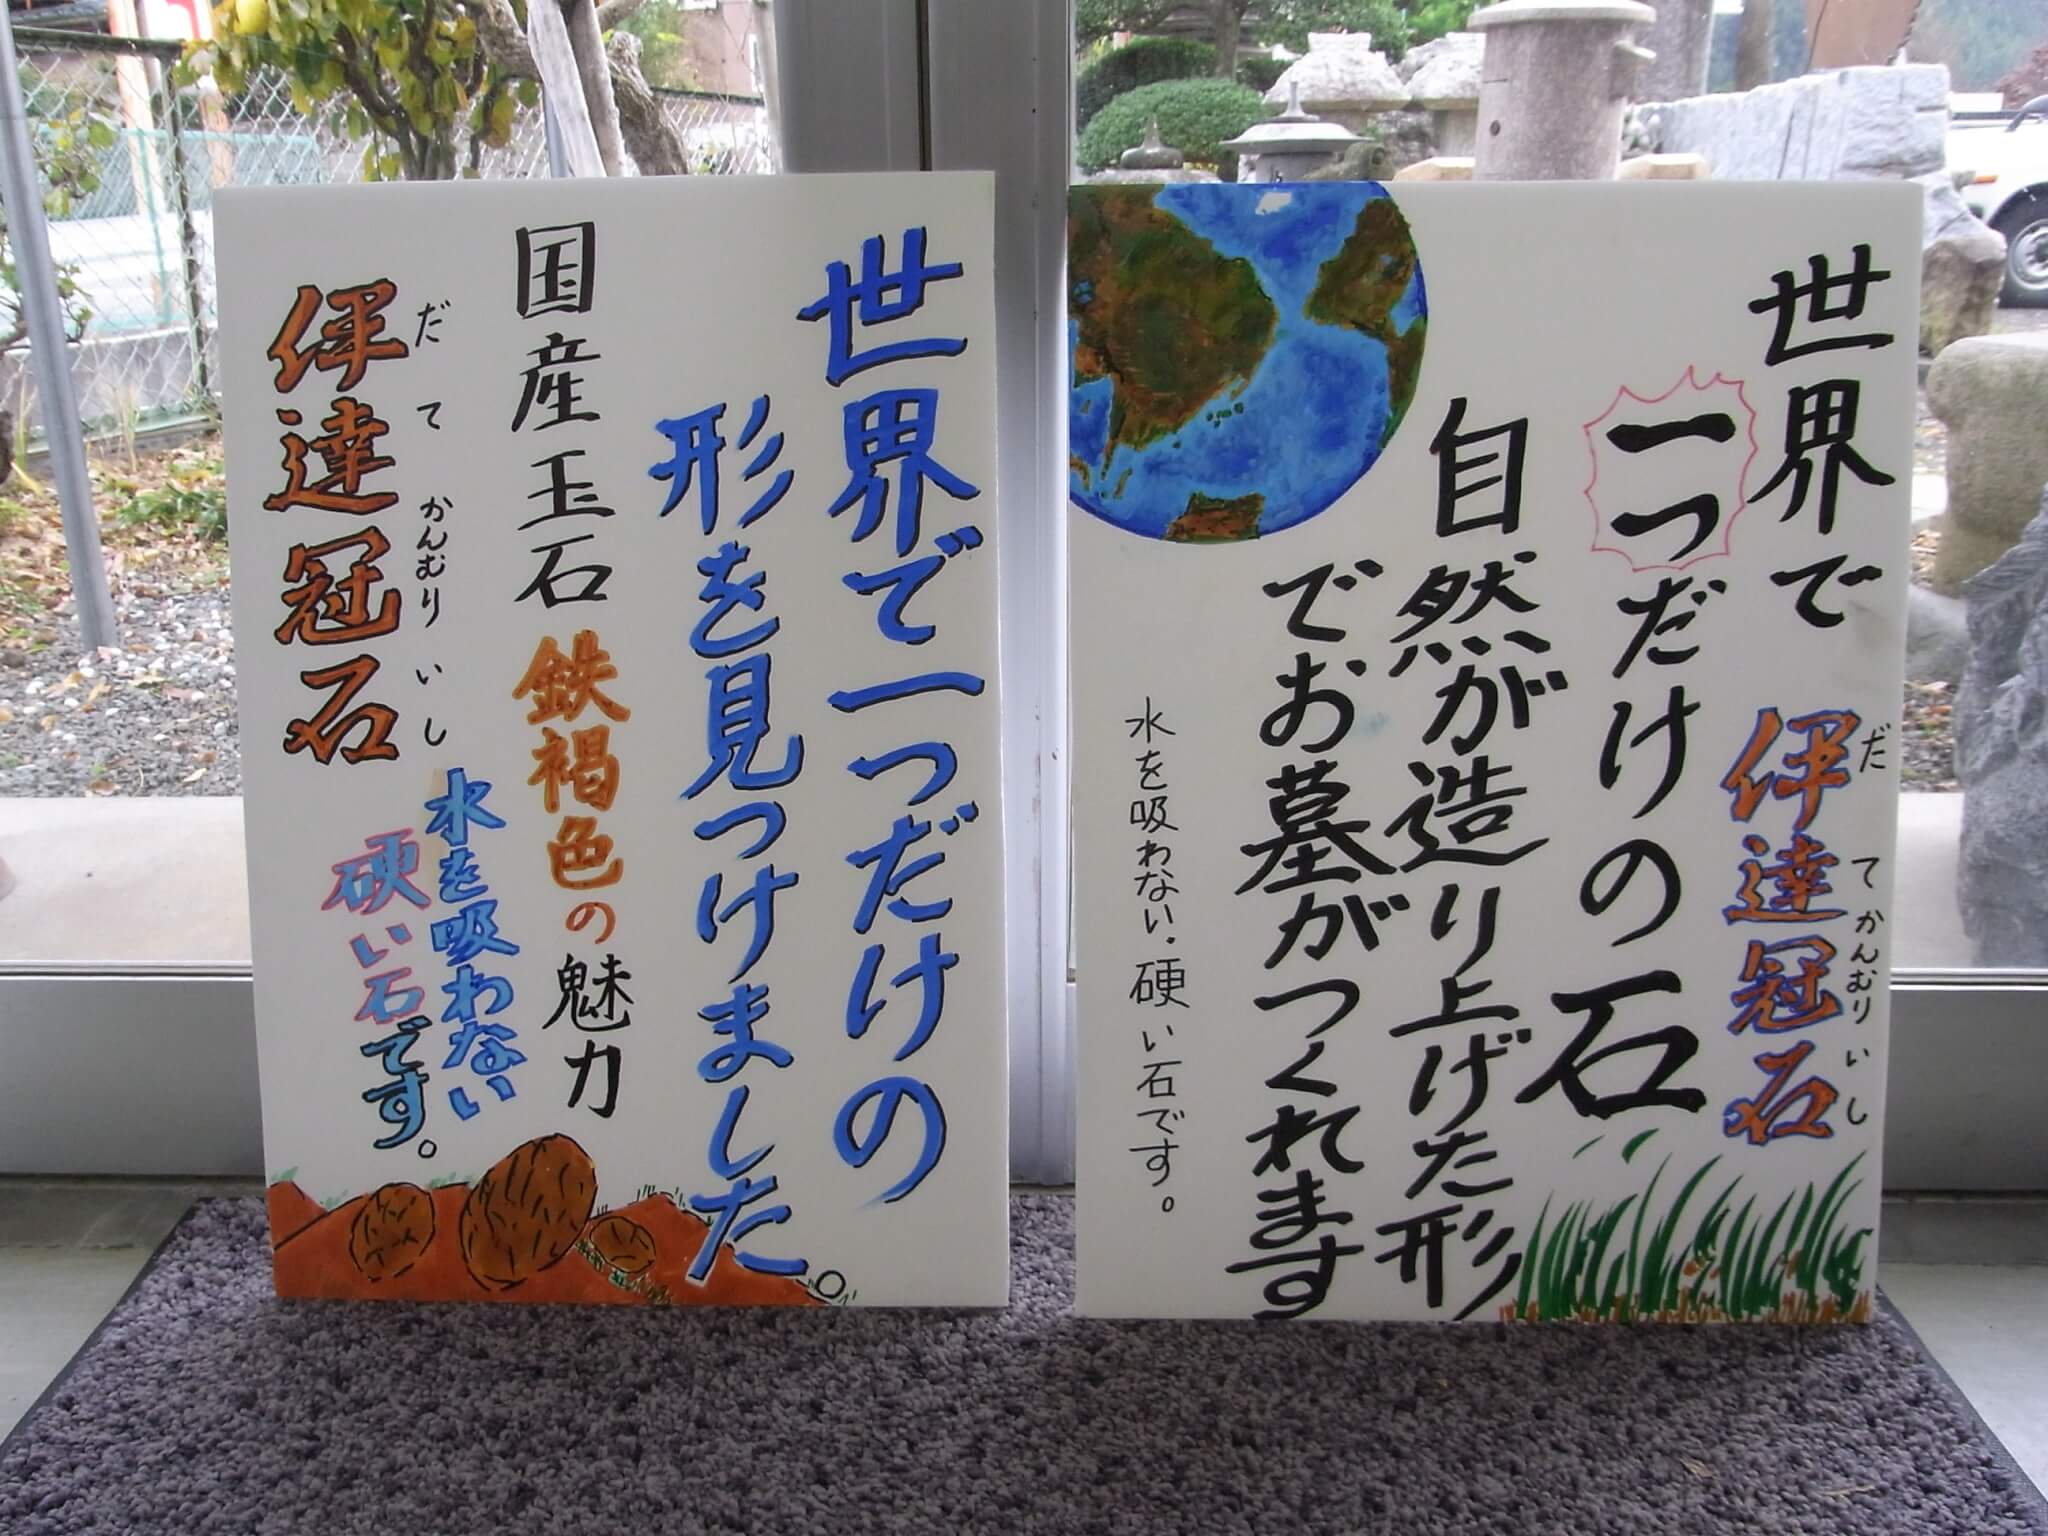 世界で一つだけの
形を見つけました。
国産玉石 鉄褐色の魅力
だてかんむりいし
伊達冠石
水を吸わない
硬い石です。
世界で
一つだけの石
だてかんむりいし
伊達冠石
自然が造り上げた形
でお墓がつくれます
水を吸わない・硬い石です。